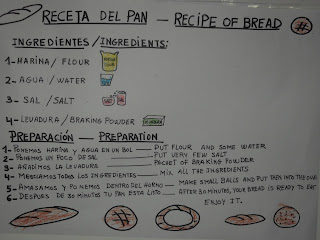 RECETA DEL PAN — RECIPE OF BREAD
INGREDIENTES / INGREDIENTS:
1- HARINA / FLOUR
2- AGUA / WATER
3- SAL / SALT
4- LEVADURA / BRAKING POWDER
PREPARACIÓN — PREPARATION
1- PONEMOS HARINA Y AGUA EN UN BOL — PUT FLOUR AND SOME WATER
2- PONEMOS UN POCO DE SAL — PUT VERY FEW SALT
3- AÑADIMOS LA LEVADURA — PACKET OF BRAKING POWDER
4- MEZCLAMOS TODOS LOS INGREDIENTES — MIX ALL THE INGREDIENTS
5- AMASAMOS Y PONEMOS DENTRO DEL HORNO — MAKE SMALL BALLS AND PUT THEN INTO THE
6- DESPUES DE 30 MINUTOS TU PAN ESTA LISTO — AFTER 30 MINUTES, YOUR BREAD IS READY TO EAT
ENJOY IT.